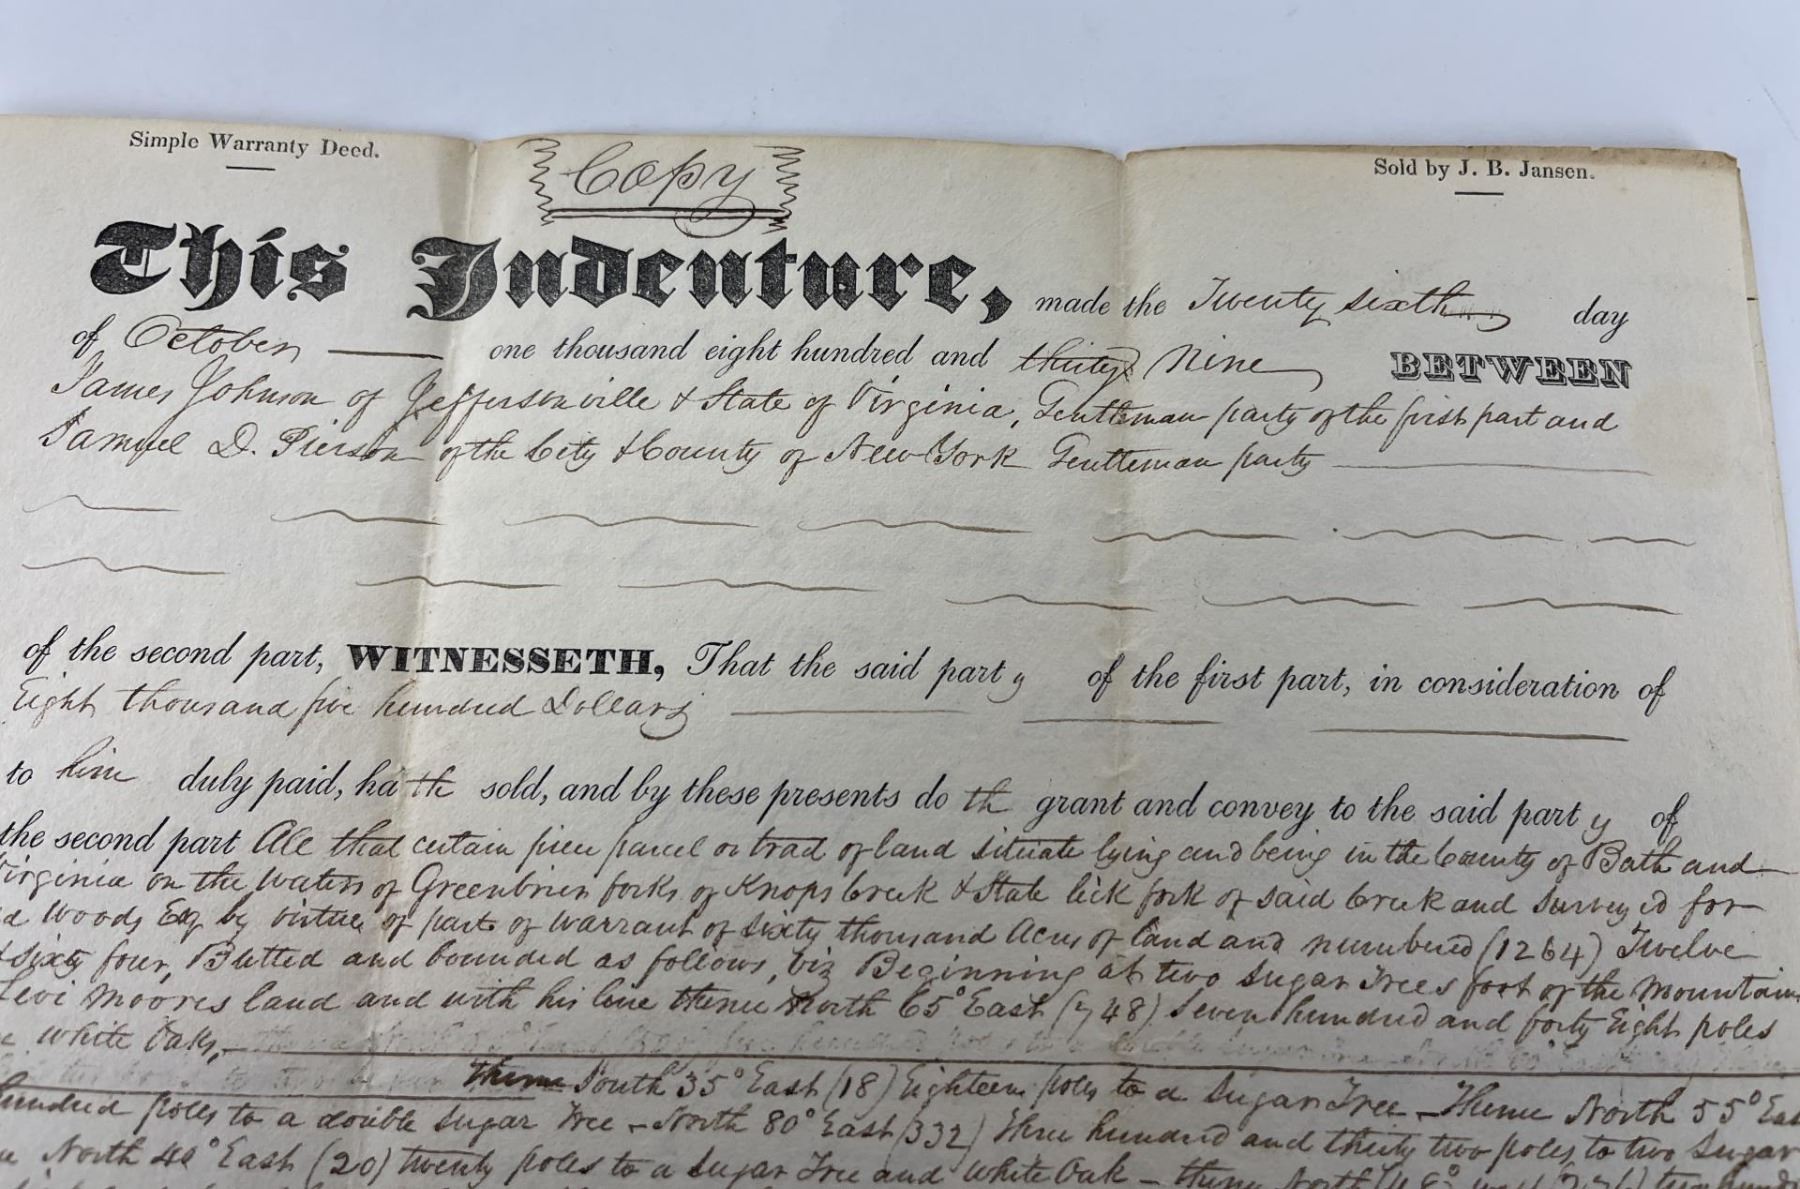 Simple Warranty Deed.
Copy
Sold by J. B. Jansen.
This Indenture, made the Twenty sixth day
of October one thousand eight hundred and thirty Nine BETWEEN
James Johnson of Jeffersonville & State of Virginia, Gentleman party of the first part and
Samuel D. Pierson of the City & County of New York Gentleman party
of the second part, WITNESSETH, That the said party of the first part, in consideration of
Eight thousand five hundred Dollars
to him duly paid, hath sold, and by these presents doth grant and convey to the said party of
the second part All that certain piece parcel or tract of land situate lying and being in the County of Bath and
Virginia on the waters of Greenbrier forks of Knops Creek & State lick fork of said Creek and surveyed for
Woods Esq by virtue of part of warrant of sixty thousand Acres of land and numbered (1264) Twelve
& sixty four, Butted and bounded as follows, viz Beginning at two Sugar Trees foot of the Mountain
Levi Moores land and with his line thence North 65° East (748) Seven hundred and forty Eight poles
White Oaks,
Thence South 35° East (18) Eighteen poles to a Sugar Tree - Thence North 55° East
hundred poles to a double Sugar Tree - North 80° East (332) Three hundred and thirty two poles to two Sugar
North 40° East (20) twenty poles to a Sugar Tree and White Oak - thence North